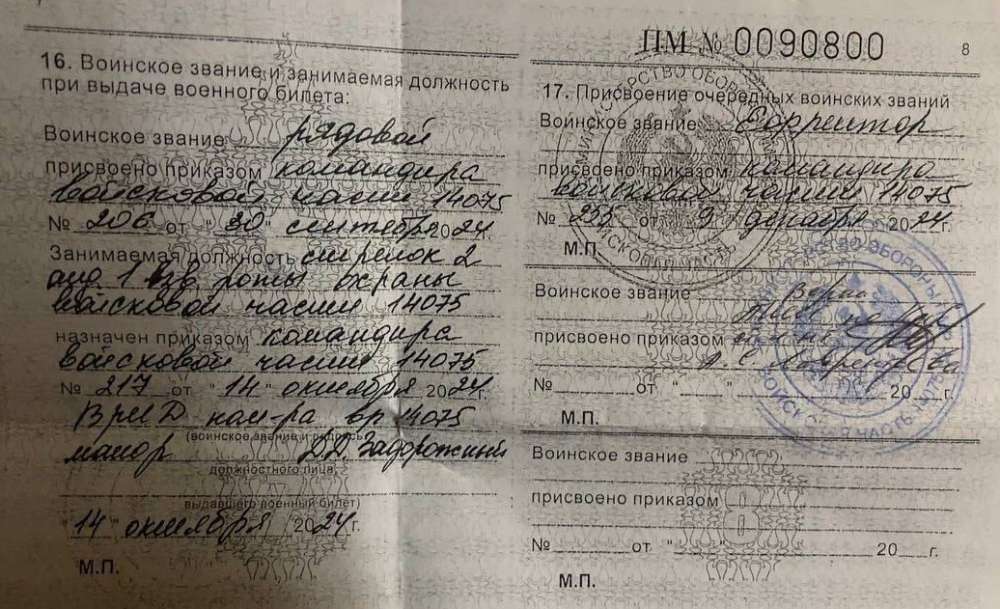 16. Воинское звание и занимаемая должность
при выдаче военного билета:
Воинское звание рядовой
присвоено приказом командира
войсковой части 14075
№ 206 от "30" сентября 2024г.
Занимаемая должность стрелок 2
отд 1 взв роты охраны
войсковой части 14075
назначен приказом командира
войсковой части 14075
№ 217 от "14" октября 2024г.
ВРИД ком-ра вр 14075
(воинское звание и подпись
майор Д.Д. Задорожный
должностного лица,
выдавшего военный билет)
"14" октября 2024г.
М.П.
ПМ № 0090800
8
17. Присвоение очередных воинских званий
Воинское звание Ефрейтор
присвоено приказом командира
войсковой части 14075
№ 255 от 9 декабря 2024г.
М.П.
Воинское звание Верно
присвоено приказом
№ от " " 20 г.
М.П.
Воинское звание
присвоено приказом
№ от " " 20 г.
М.П.
ВОЙСКОВАЯ ЧАСТЬ